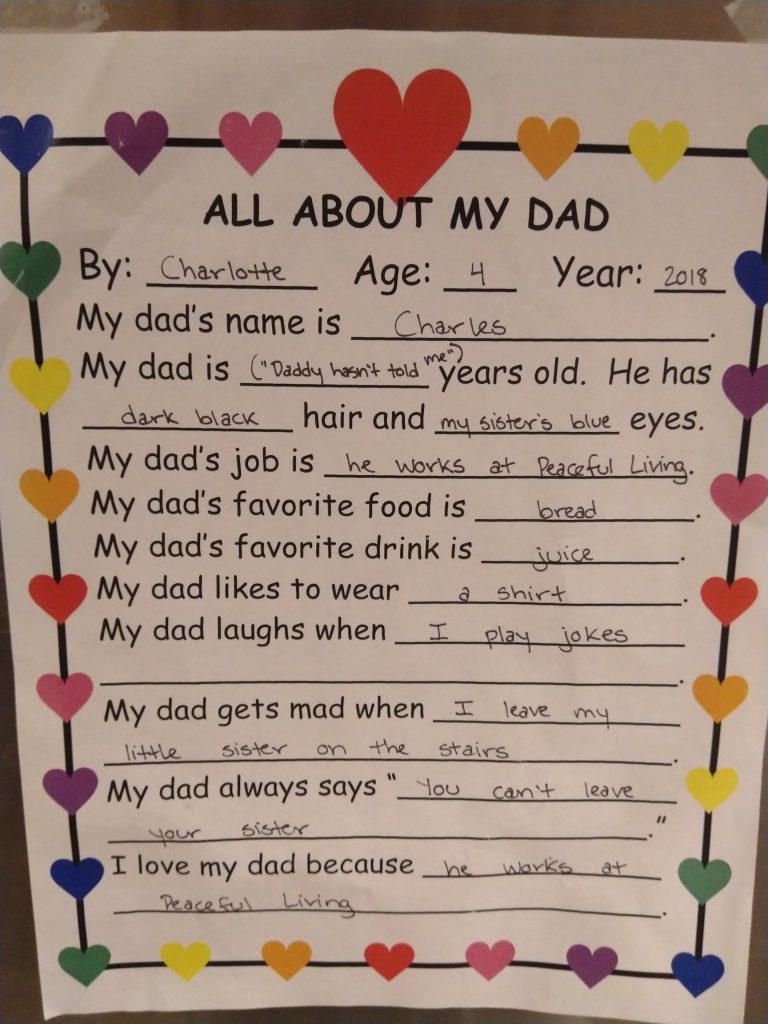 ALL ABOUT MY DAD
By: Charlotte Age: 4 Year: 2018
My dad's name is Charles.
My dad is ("Daddy hasn't told me") years old. He has
dark black hair and my sister's blue eyes.
My dad's job is he works at Peaceful Living.
My dad's favorite food is bread.
My dad's favorite drink is juice.
My dad likes to wear a shirt.
My dad laughs when I play jokes
.
My dad gets mad when I leave my
little sister on the stairs.
My dad always says "You can't leave
your sister."
I love my dad because he works at
Peaceful Living.